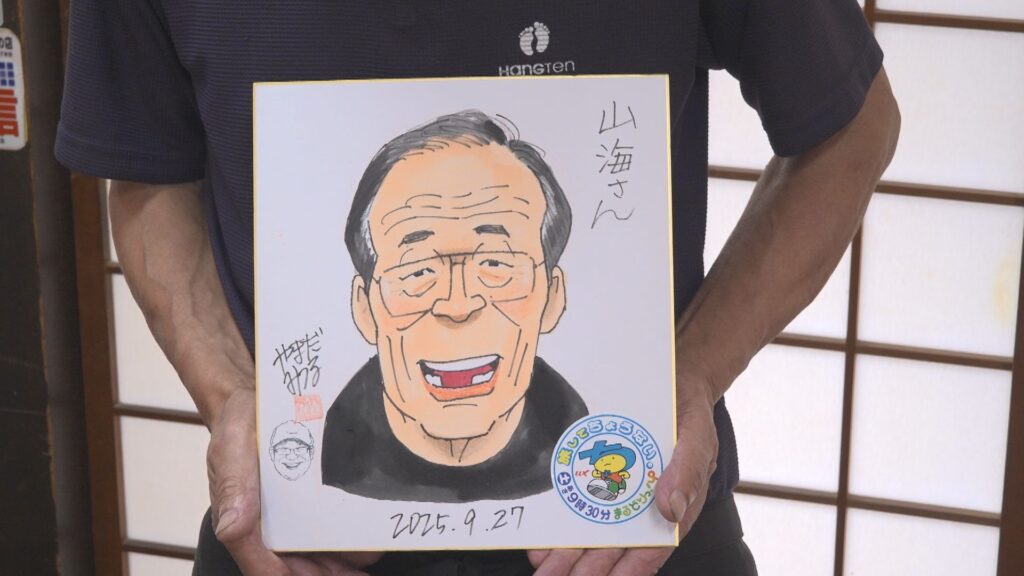 HANGTEN
山海さん
やまだ
みつる
旅してちょうない。
UX
あさ9時30分
まるどりっ!UP
2025.9.27